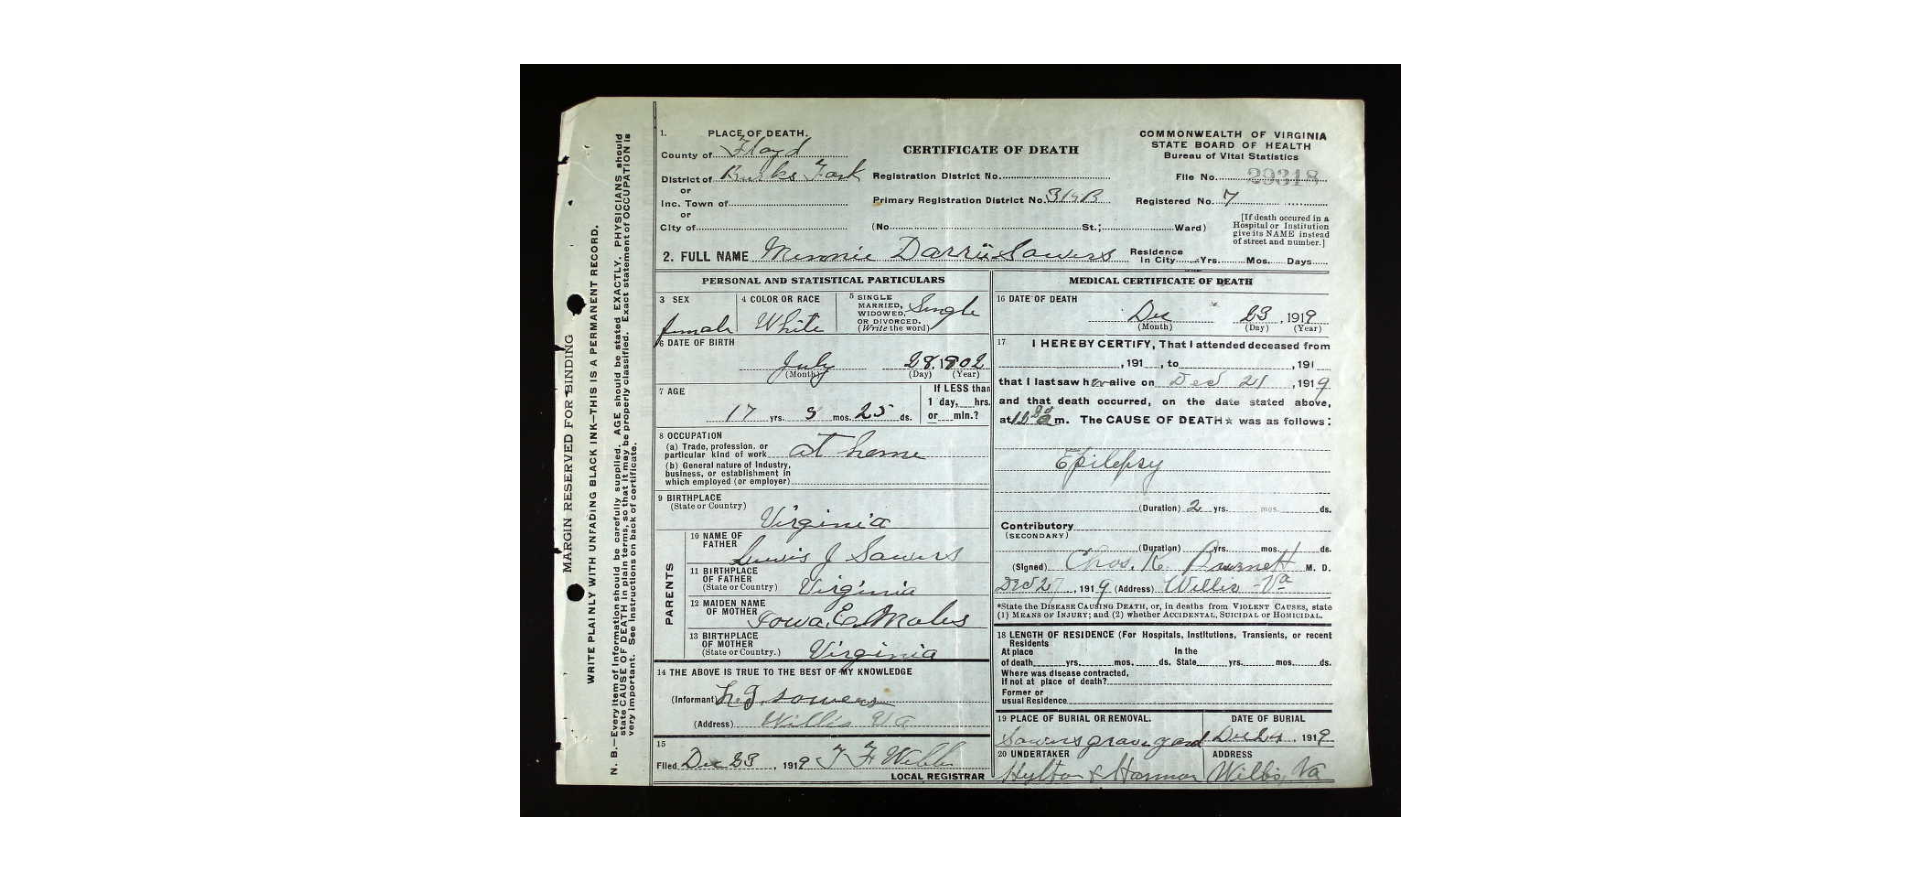 1. PLACE OF DEATH.
County of Floyd
District of Burks Fork
or
Inc. Town of
or
City of
CERTIFICATE OF DEATH
Registration District No.
Primary Registration District No. 319B
(No. St.; Ward)
COMMONWEALTH OF VIRGINIA
STATE BOARD OF HEALTH
Bureau of Vital Statistics
File No. 29318
Registered No. 7
[If death occured in a
Hospital or Institution
give its NAME instead
of street and number.]
2. FULL NAME Minnie Darris Sowers
Residence
In City Yrs. Mos. Days
PERSONAL AND STATISTICAL PARTICULARS
3 SEX
female
4 COLOR OR RACE
White
5 SINGLE
MARRIED,
WIDOWED,
OR DIVORCED.
(Write the word)
Single
6 DATE OF BIRTH
July 28, 1902
(Month) (Day) (Year)
7 AGE
17 yrs. mos. 25 ds.
If LESS than
1 day, hrs.
or min.?
8 OCCUPATION
(a) Trade, profession, or
particular kind of work at home
(b) General nature of Industry,
business, or establishment in
which employed (or employer)
9 BIRTHPLACE
(State or Country)
Virginia
PARENTS
10 NAME OF
FATHER
Lewis J Sowers
11 BIRTHPLACE
OF FATHER
(State or Country)
Virginia
12 MAIDEN NAME
OF MOTHER
Iowa E. Moles
13 BIRTHPLACE
OF MOTHER
(State or Country.)
Virginia
14 THE ABOVE IS TRUE TO THE BEST OF MY KNOWLEDGE
(Informant) L. J. Sowers
(Address) Willis Va
15
Filed Dec 23, 1919 T F Webb
LOCAL REGISTRAR
MEDICAL CERTIFICATE OF DEATH
16 DATE OF DEATH
Dec 23, 1919
(Month) (Day) (Year)
17 I HEREBY CERTIFY, That I attended deceased from
, 191 , to , 191
that I last saw her alive on Dec 21, 1919
and that death occurred, on the date stated above,
at m. The CAUSE OF DEATH* was as follows:
Epilepsy
(Duration) 2 yrs. mos. ds.
Contributory
(SECONDARY)
(Duration) yrs. mos. ds.
(Signed) Chas. K. Burnett M. D.
Dec 27, 1919 (Address) Willis Va
*State the DISEASE CAUSING DEATH, or, in deaths from VIOLENT CAUSES, state
(1) MEANS OF INJURY; and (2) whether ACCIDENTAL, SUICIDAL or HOMICIDAL.
18 LENGTH OF RESIDENCE (For Hospitals, Institutions, Transients, or recent
Residents
At place In the
of death yrs. mos. ds. State yrs. mos. ds.
Where was disease contracted,
If not at place of death?
Former or
usual Residence
19 PLACE OF BURIAL OR REMOVAL.
Sowers grave yard
DATE OF BURIAL
Dec 24, 1919
20 UNDERTAKER
Hylton & Harman
ADDRESS
Willis, Va
MARGIN RESERVED FOR BINDING
WRITE PLAINLY WITH UNFADING BLACK INK—THIS IS A PERMANENT RECORD.
N. B.—Every item of information should be carefully supplied. AGE should be stated EXACTLY. PHYSICIANS should
state CAUSE OF DEATH in plain terms, so that it may be properly classified. Exact statement of OCCUPATION is
very important. See instructions on back of certificate.